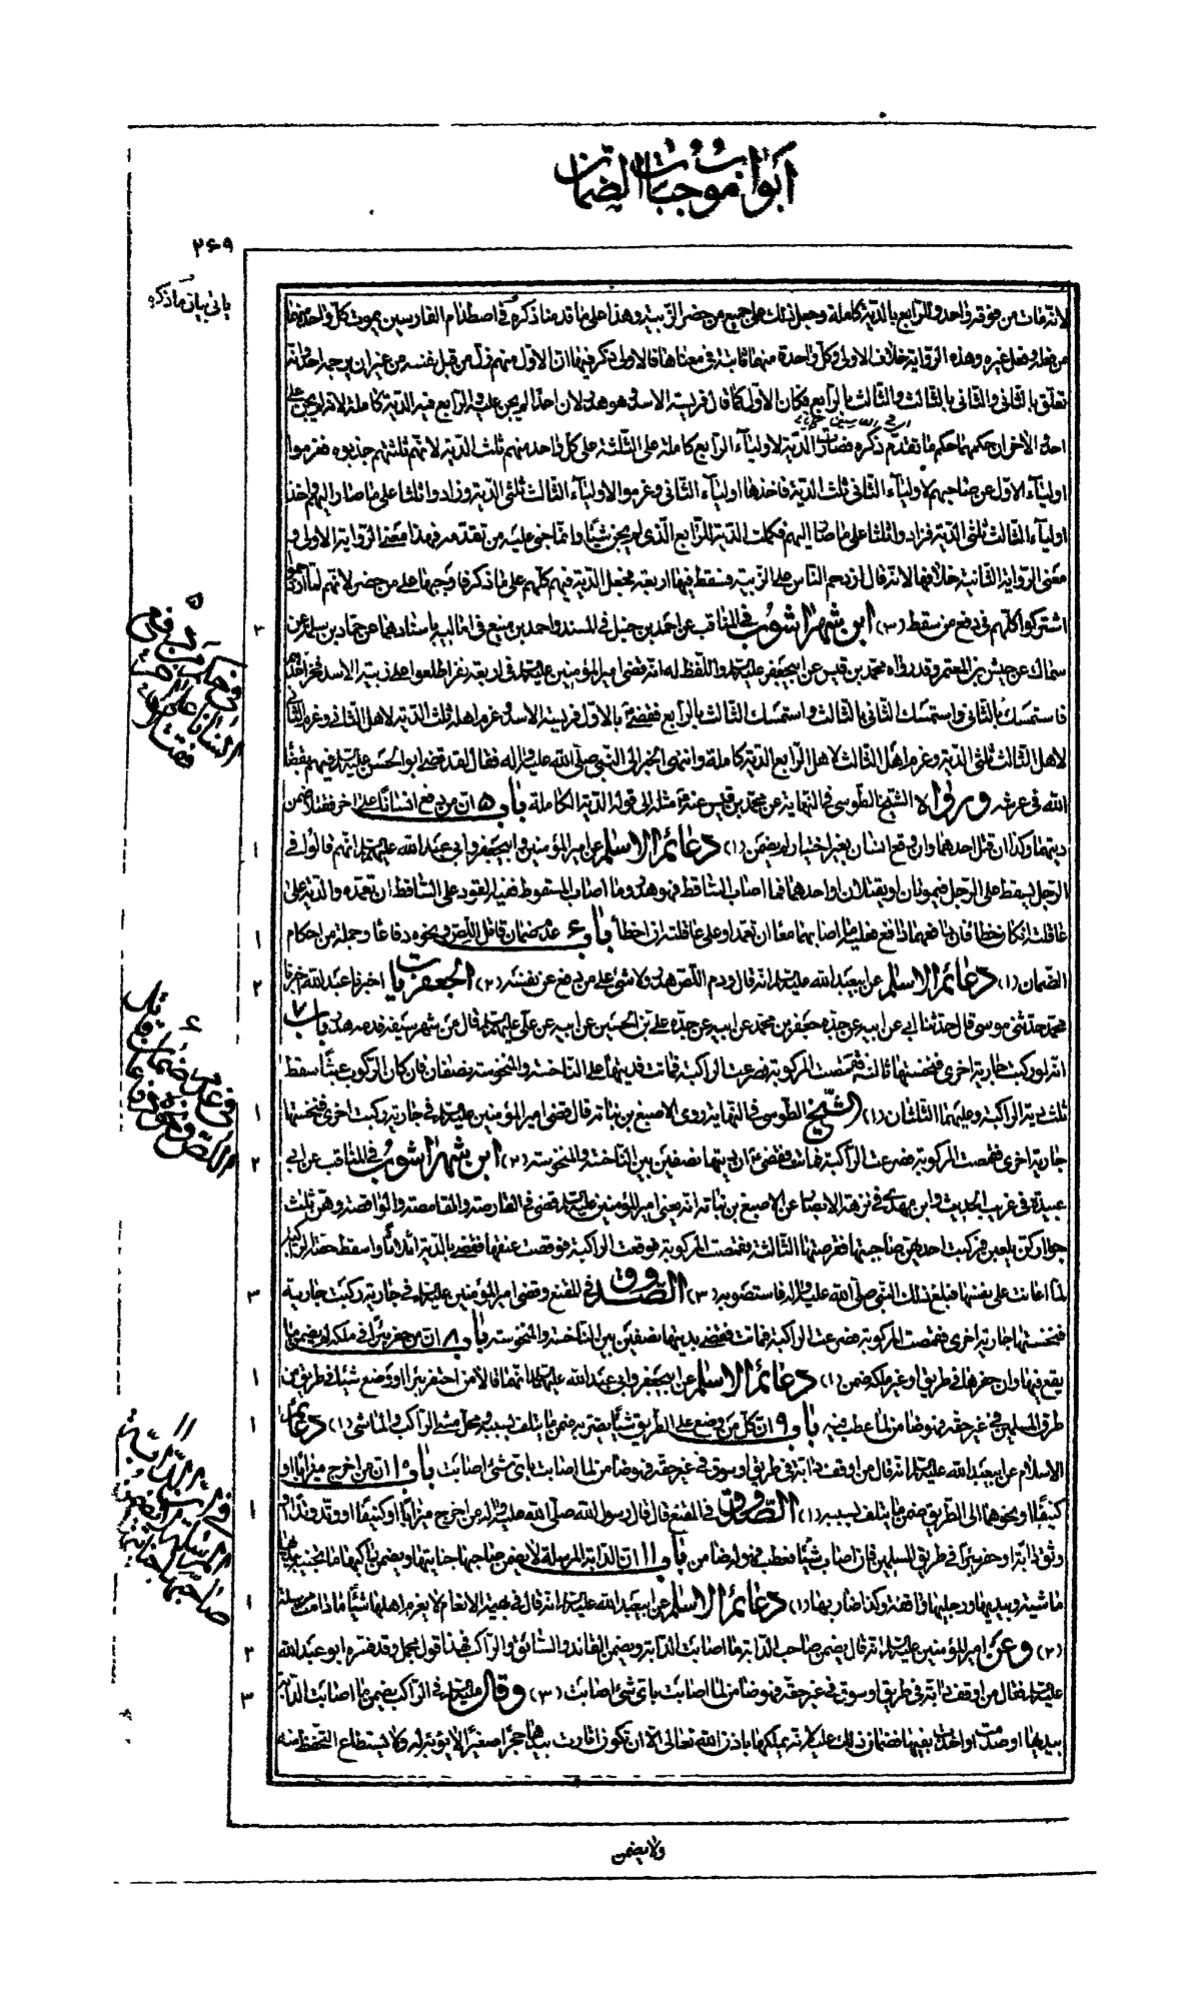 ابواب موجبات الضمان
۲۶۹
ياتي بيان ما ذكره
لانه مات من فوقه واحد وللرابع بالدية كاملة وجعل ذلك على جميع من حضر الزبية وهذا على ما قدمنا ذكره في اصطدام الفارسين يموت كل واحد منهما
من فعله وفعل غيره وهذه الرواية خلاف الاولى وكل واحدة منهما ثابتة في معناها فالاولى ذكر فيها ان الاول منهم زل من قبل نفسه من غير ان يوجبه احد وانه
تعلق بالثاني والثاني بالثالث والثالث بالرابع فكان الاول كما قال فريسة الاسد وهو هدر لان احدا لم يجن عليه والرابع فيه الدية كاملة لانه لم يجن على
احد والاخران حكمهما حكم ما تقدم ذكره فصارت الدية لاولياء الرابع كاملة على الثلثة على كل واحد منهم ثلث الدية لانهم ثلثتهم جذبوه فغرموا
اولياء الاول عن صاحبهم لاولياء الثاني ثلث الدية فاخذها اولياء الثاني وغرموا لاولياء الثالث ثلثي الدية وزادوا ثلثا على ما صار اليهم واخذ
اولياء الثالث ثلثي الدية فزادوا ثلثا على ما صار اليهم فكملت الدية للرابع الذي لم يجن شيئا وانما جنى عليه من تقدمه فهذا معنى الرواية الاولى و
معنى الرواية الثانية خلافها لانه قال ازدحم الناس على الزبية فسقط فيها اربعة فجعل الدية فيهم كلهم على ما ذكر فاوجبها على من حضر لانهم لما ازدحموا
اشتركوا كلهم في دفع من سقط (۳) ابن شهراشوب في المناقب عن احمد بن حنبل في المسند واحمد بن منيع في اماليه باسنادهما عن حماد بن سلمة عن
سماك عن حبيش بن المعتمر وقد رواه محمد بن قيس عن ابيجعفر عليه السلام واللفظ له انه قضى امير المؤمنين عليه السلام في اربعة نفر اطلعوا على زبية الاسد فخر احدهم
فاستمسك بالثاني واستمسك الثاني بالثالث واستمسك الثالث بالرابع فقضى بالاول فريسة الاسد وغرم اهله ثلث الدية لاهل الثاني وغرم الثاني
لاهل الثالث ثلثي الدية وغرم اهل الثالث لاهل الرابع الدية كاملة وانتهى الخبر الى النبي صلى الله عليه واله فقال لقد قضى ابو الحسن عليه السلام فيهم بقضاء
الله في عرشه ورواه الشيخ الطوسي في النهاية عن محمد بن قيس عنه مثله الى قوله الدية الكاملة باب ۵ ان من دفع انسانا على اخر فقتلا ضمن
ديتهما وكذا ان قتل احدهما وان وقع انسان بغير اختيار لم يضمن (۱) دعائم الاسلام عن امير المؤمنين وابيجعفر وابي عبد الله عليهم السلام انهم قالوا في
الرجل يسقط على الرجل فيموتان او يقتلان او احدهما فما اصاب الساقط فهو هدر وما اصاب المسقوط ففيه القود على الساقط ان تعمده والدية على
عاقلته ان كان خطا فان دفعهما دافع فعليه ما اصابهما معا ان تعمد او على عاقلته ان اخطأ باب ۶ عدم ضمان قاتل اللص ونحوه دفاعا وجملة من احكام
الضمان (۱) دعائم الاسلام عن ابيعبد الله عليه السلام انه قال ودم اللص هدر ولا شيء على من دفع عن نفسه (۲) الجعفريات اخبرنا عبد الله اخبرنا
محمد حدثني موسى قال حدثنا ابي عن ابيه عن جده جعفر بن محمد عن ابيه عن جده علي بن الحسين عن ابيه عن علي عليهم السلام قال من شهر سيفه فدمه هدر باب ۷
انه لو ركبت جارية اخرى فنخستها ثالثة فقمصت المركوبة فصرعت الراكبة فماتت فديتها على الناخسة والمنخوسة نصفان فان كان الركوب عبثا سقط
ثلث دية الراكبة وعليهما الثلثان (۱) الشيخ الطوسي في النهاية روى الاصبغ بن نباتة قال قضى امير المؤمنين عليه السلام في جارية ركبت اخرى فنخستها
جارية اخرى فقمصت المركوبة فصرعت الراكبة فماتت فقضى ان ديتها نصفين بين الناخسة والمنخوسة (۲) ابن شهراشوب في المناقب عن ابي
عبيدة في غريب الحديث وابن مهدي في نزهة الابصار عن الاصبغ بن نباتة انه يعني امير المؤمنين عليه السلام قضى في القارصة والقامصة والواقصة وهن ثلث
جوار كن يلعبن فركبت احديهن صاحبتها فقرصتها الثالثة فقمصت المركوبة فوقعت الراكبة فوقصت عنقها فقضى بالدية اثلاثا واسقط حصة الراكبة
لما اعانت على نفسها فبلغ ذلك النبي صلى الله عليه واله فاستصوبه (۳) الصدوق في المقنع وقضى امير المؤمنين عليه السلام في جارية ركبت جارية
فنخستها جارية اخرى فقمصت المركوبة فصرعت الراكبة فماتت فقضى بديتها نصفين بين الناخسة والمنخوسة باب ۸ ان من حفر بئرا في ملكه لم يضمن ما
يقع فيها وان حفرها في طريق او غير ملكه ضمن (۱) دعائم الاسلام عن ابيجعفر وابي عبد الله عليهما السلام انهما قالا من احتفر بئرا او وضع شيئا في طريق من
طرق المسلمين في غير حقه فهو ضامن لما عطب فيه باب ۹ ان كل من وضع على الطريق شيئا يضر به ضمن ما يتلف بسببه وحكم مشي الراكب والماشي (۱) دعائم
الاسلام عن ابيعبد الله عليه السلام انه قال من اوقف دابة في طريق او سوق في غير حقه فهو ضامن لما اصابت باي شيء اصابت باب ۱۰ ان من اخرج ميزابا او
كنيفا او نحوهما الى الطريق ضمن ما يتلف بسببه (۱) الصدوق في المقنع قال قال رسول الله صلى الله عليه واله من اخرج ميزابا او كنيفا او وتد وتدا او
وثق دابة او حفر بئرا في طريق المسلمين فان اصاب شيئا فعطب فهو له ضامن باب ۱۱ ان الدابة المرسلة لا يضمن صاحبها جنايتها ويضمن راكبها ما تجنيه بيديها
ماشية وبيديها ورجليها واقفة وكذا ضاربها (۱) دعائم الاسلام عن ابيعبد الله عليه السلام انه قال في بهيمة الانعام لا يغرم اهلها شيئا ما دامت مرسلة
(۲) وعن امير المؤمنين عليه السلام انه قال يضمن صاحب الدابة ما اصابت الدابة ويضمن القائد والسائق والراكب فهذا قول مجمل وقد فسره ابو عبد الله
عليه السلام فقال من اوقف دابة في طريق او سوق في غير حقه فهو ضامن لما اصابت باي شيء اصابت (۳) وقال عليه السلام في الراكب يضمن ما اصابت الدابة
بيديها او صدمت او اخذت بفيها فضمان ذلك عليه لانه يملكها باذن الله تعالى الا ان تكون اثارت بيدها حجرا صغيرا لا يؤبه له ولا يستطاع التحفظ منه
ولا يضمن